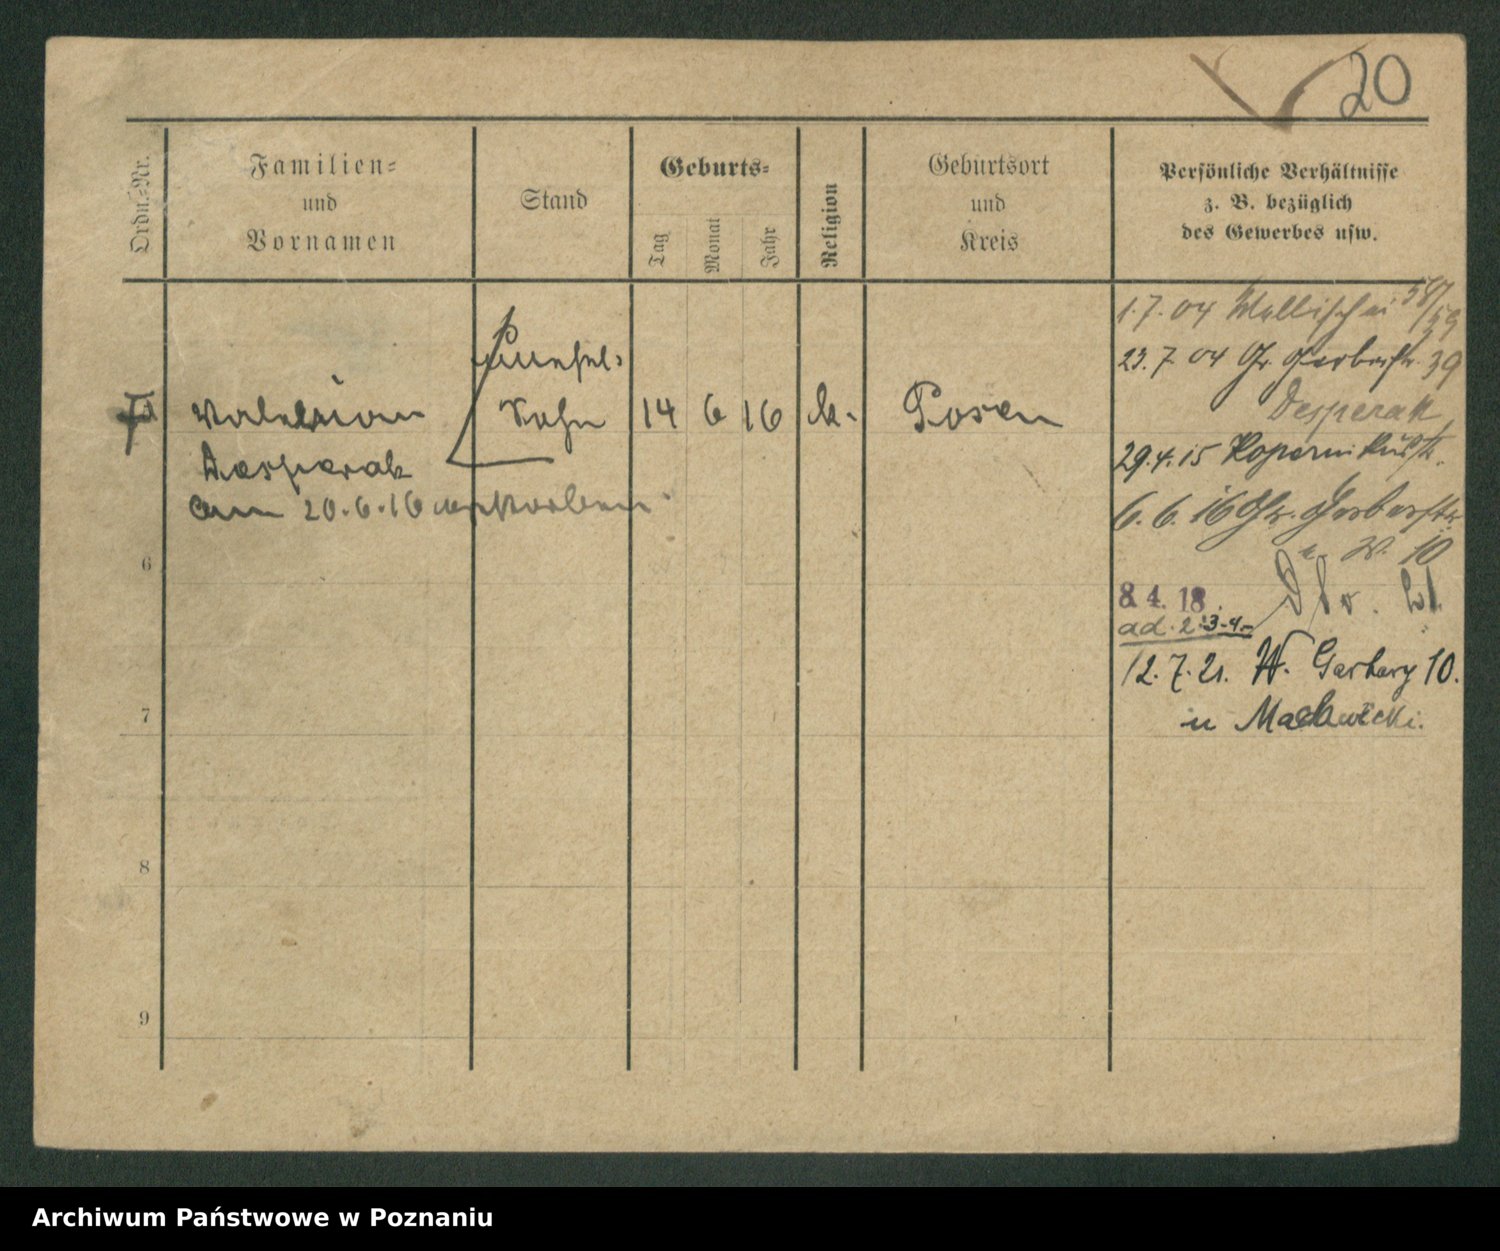 20
Ordn.-Nr.
Familien-
und
Vornamen
Stand
Geburts-
Tag
Monat
Jahr
Religion
Geburtsort
und
Kreis
Persönliche Verhältnisse
z. B. bezüglich
des Gewerbes usw.
1.7.04 Wallischei 58/59
23.7.04 Gr. Gerberstr. 39
Desperak
Sohn 14 6 16 k. Posen
29.4.15 Kopernikusstr.
Desperak
am 20.6.16 verstorben
6.6.16 Gr. Gerberstr.
W. 10
6
8.4.18.
ad. 2.3.4.
12.7.21. W. Garbary 10.
7
u Maćkowicki.
8
9
Archiwum Państwowe w Poznaniu